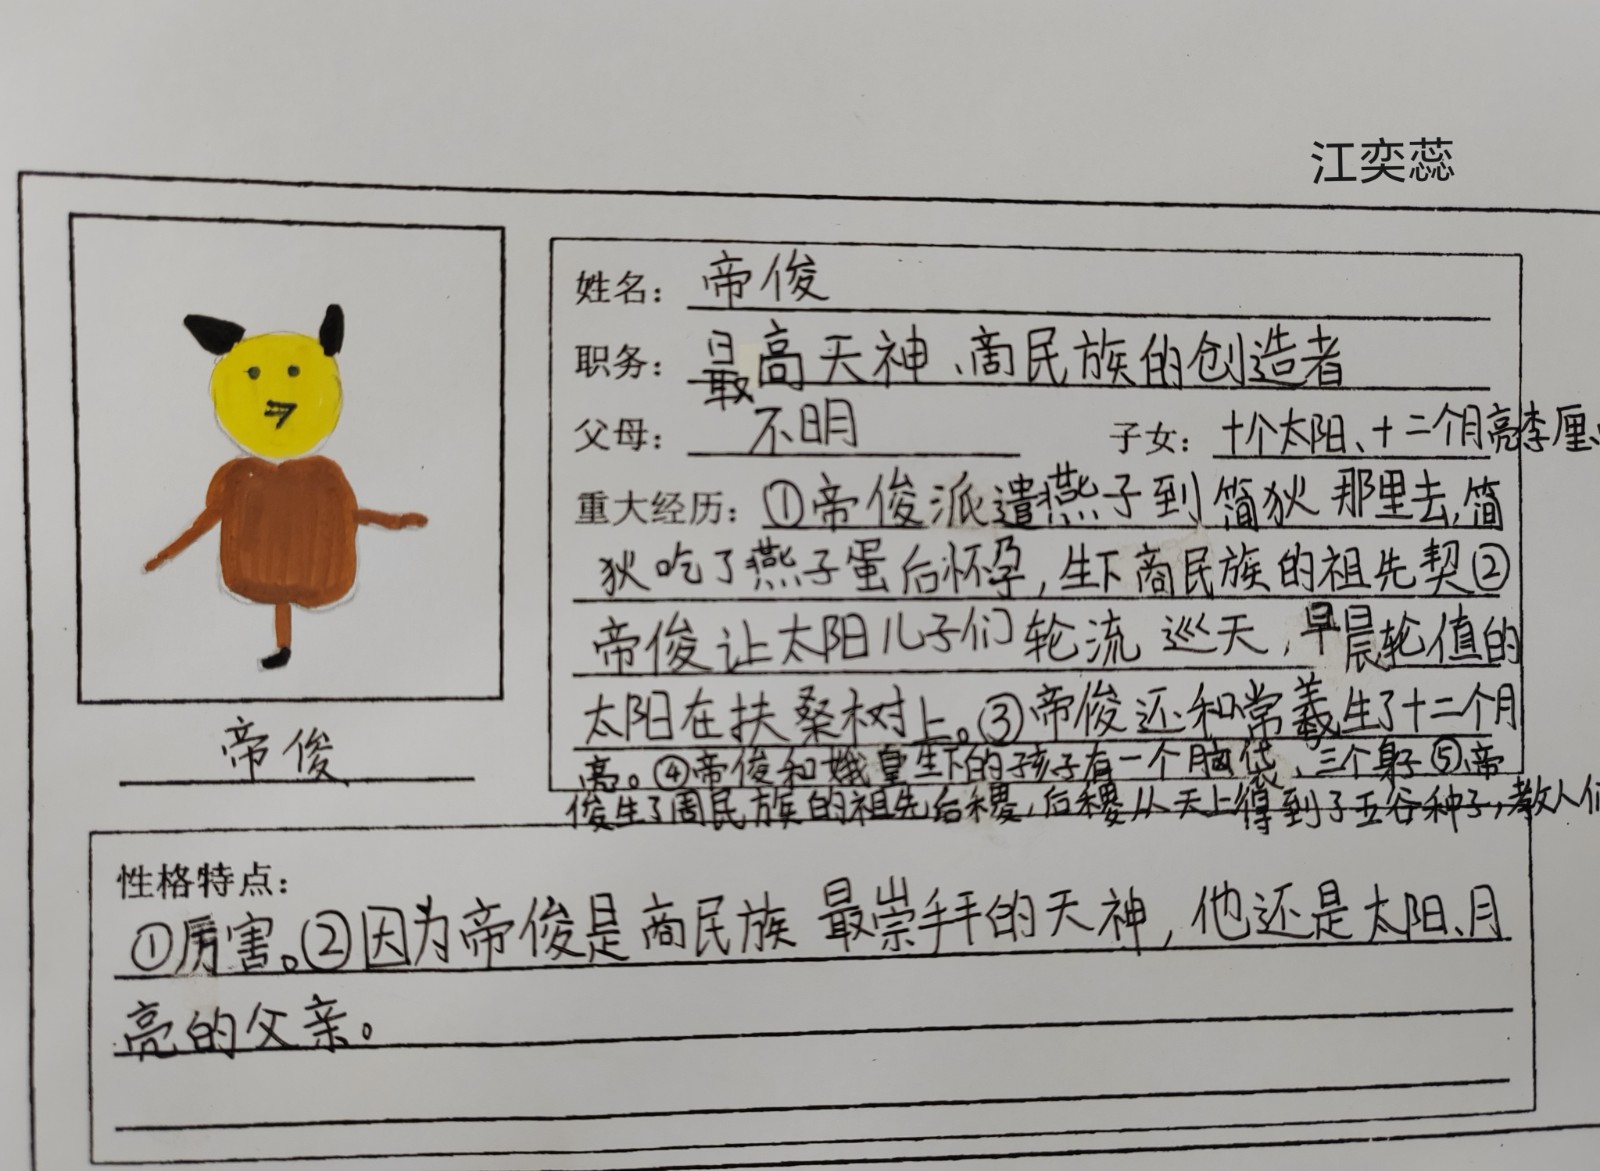 江奕蕊
姓名：帝俊
职务：最高天神、商民族的创造者
父母：不明 子女：十个太阳、十二个月亮李厘、
重大经历：①帝俊派遣燕子到简狄那里去,简
狄吃了燕子蛋后怀孕,生下商民族的祖先契②
帝俊让太阳儿子们轮流巡天,早晨轮值的
太阳在扶桑树上。③帝俊还和常羲生了十二个月
亮。④帝俊和娥皇生下的孩子有一个脑袋、三个身子⑤帝
俊生了周民族的祖先后稷,后稷从天上得到了五谷种子,教人们
帝俊
性格特点：
①厉害。②因为帝俊是商民族最崇拜的天神,他还是太阳、月
亮的父亲。